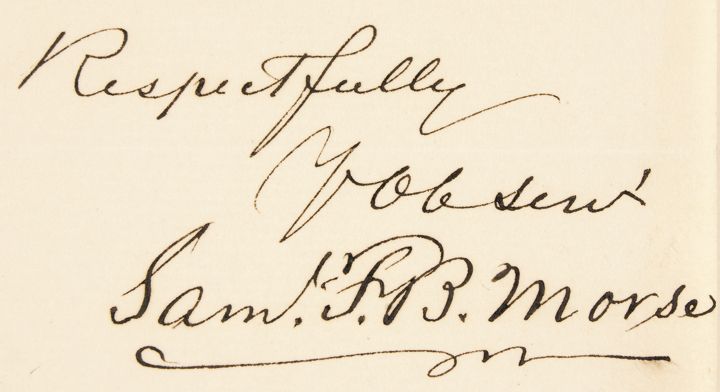 Respectfully
Y Ob serv't
Sam'l. F. B. Morse